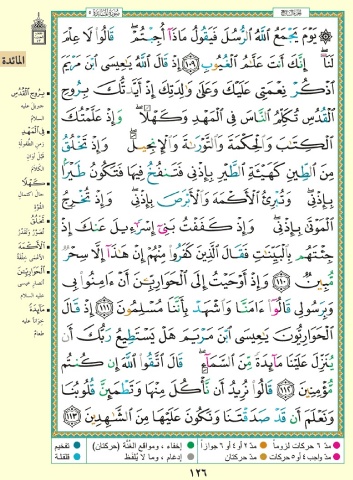 يَوْمَ يَجْمَعُ اللَّهُ الرُّسُلَ فَيَقُولُ مَاذَا أُجِبْتُمْ قَالُوا لَا عِلْمَ
لَنَا إِنَّكَ أَنتَ عَلَّامُ الْغُيُوبِ ١٠٩ إِذْ قَالَ اللَّهُ يَاعِيسَى ابْنَ مَرْيَمَ
اذْكُرْ نِعْمَتِي عَلَيْكَ وَعَلَى وَالِدَتِكَ إِذْ أَيَّدتُّكَ بِرُوحِ
الْقُدُسِ تُكَلِّمُ النَّاسَ فِي الْمَهْدِ وَكَهْلًا وَإِذْ عَلَّمْتُكَ
الْكِتَابَ وَالْحِكْمَةَ وَالتَّوْرَاةَ وَالْإِنجِيلَ وَإِذْ تَخْلُقُ
مِنَ الطِّينِ كَهَيْئَةِ الطَّيْرِ بِإِذْنِي فَتَنفُخُ فِيهَا فَتَكُونُ طَيْرًا
بِإِذْنِي وَتُبْرِئُ الْأَكْمَهَ وَالْأَبْرَصَ بِإِذْنِي وَإِذْ تُخْرِجُ
الْمَوْتَى بِإِذْنِي وَإِذْ كَفَفْتُ بَنِي إِسْرَائِيلَ عَنكَ إِذْ
جِئْتَهُم بِالْبَيِّنَاتِ فَقَالَ الَّذِينَ كَفَرُوا مِنْهُمْ إِنْ هَذَا إِلَّا سِحْرٌ
مُّبِينٌ ١١٠ وَإِذْ أَوْحَيْتُ إِلَى الْحَوَارِيِّينَ أَنْ آمِنُوا بِي
وَبِرَسُولِي قَالُوا آمَنَّا وَاشْهَدْ بِأَنَّنَا مُسْلِمُونَ ١١١ إِذْ قَالَ
الْحَوَارِيُّونَ يَاعِيسَى ابْنَ مَرْيَمَ هَلْ يَسْتَطِيعُ رَبُّكَ أَن
يُنَزِّلَ عَلَيْنَا مَائِدَةً مِّنَ السَّمَاءِ قَالَ اتَّقُوا اللَّهَ إِن كُنتُم
مُّؤْمِنِينَ ١١٢ قَالُوا نُرِيدُ أَن نَّأْكُلَ مِنْهَا وَتَطْمَئِنَّ قُلُوبُنَا
وَنَعْلَمَ أَن قَدْ صَدَقْتَنَا وَنَكُونَ عَلَيْهَا مِنَ الشَّاهِدِينَ ١١٣
المائدة
بِرُوحِ الْقُدُسِ
جبريل عليه
السلام
فِي الْمَهْدِ
زمن الطفولة
قبل أوان
الكلام
كَهْلًا
تَخْلُقُ
تصوّر وتقدّر
الْأَكْمَهَ
الْحَوَارِيِّينَ
عليه السلام
مَائِدَةً
طعام
مدّ ٦ حركات لزوماً
مدّ ٢ أو ٤ أو ٦ جوازاً
إخفاء، ومواقع الغُنَّة (حركتان)
تفخيم
مدّ واجب ٤ أو ٥ حركات
مدّ حركتان
إدغام، وما لا يُلفظ
قلقلة
١٢٦